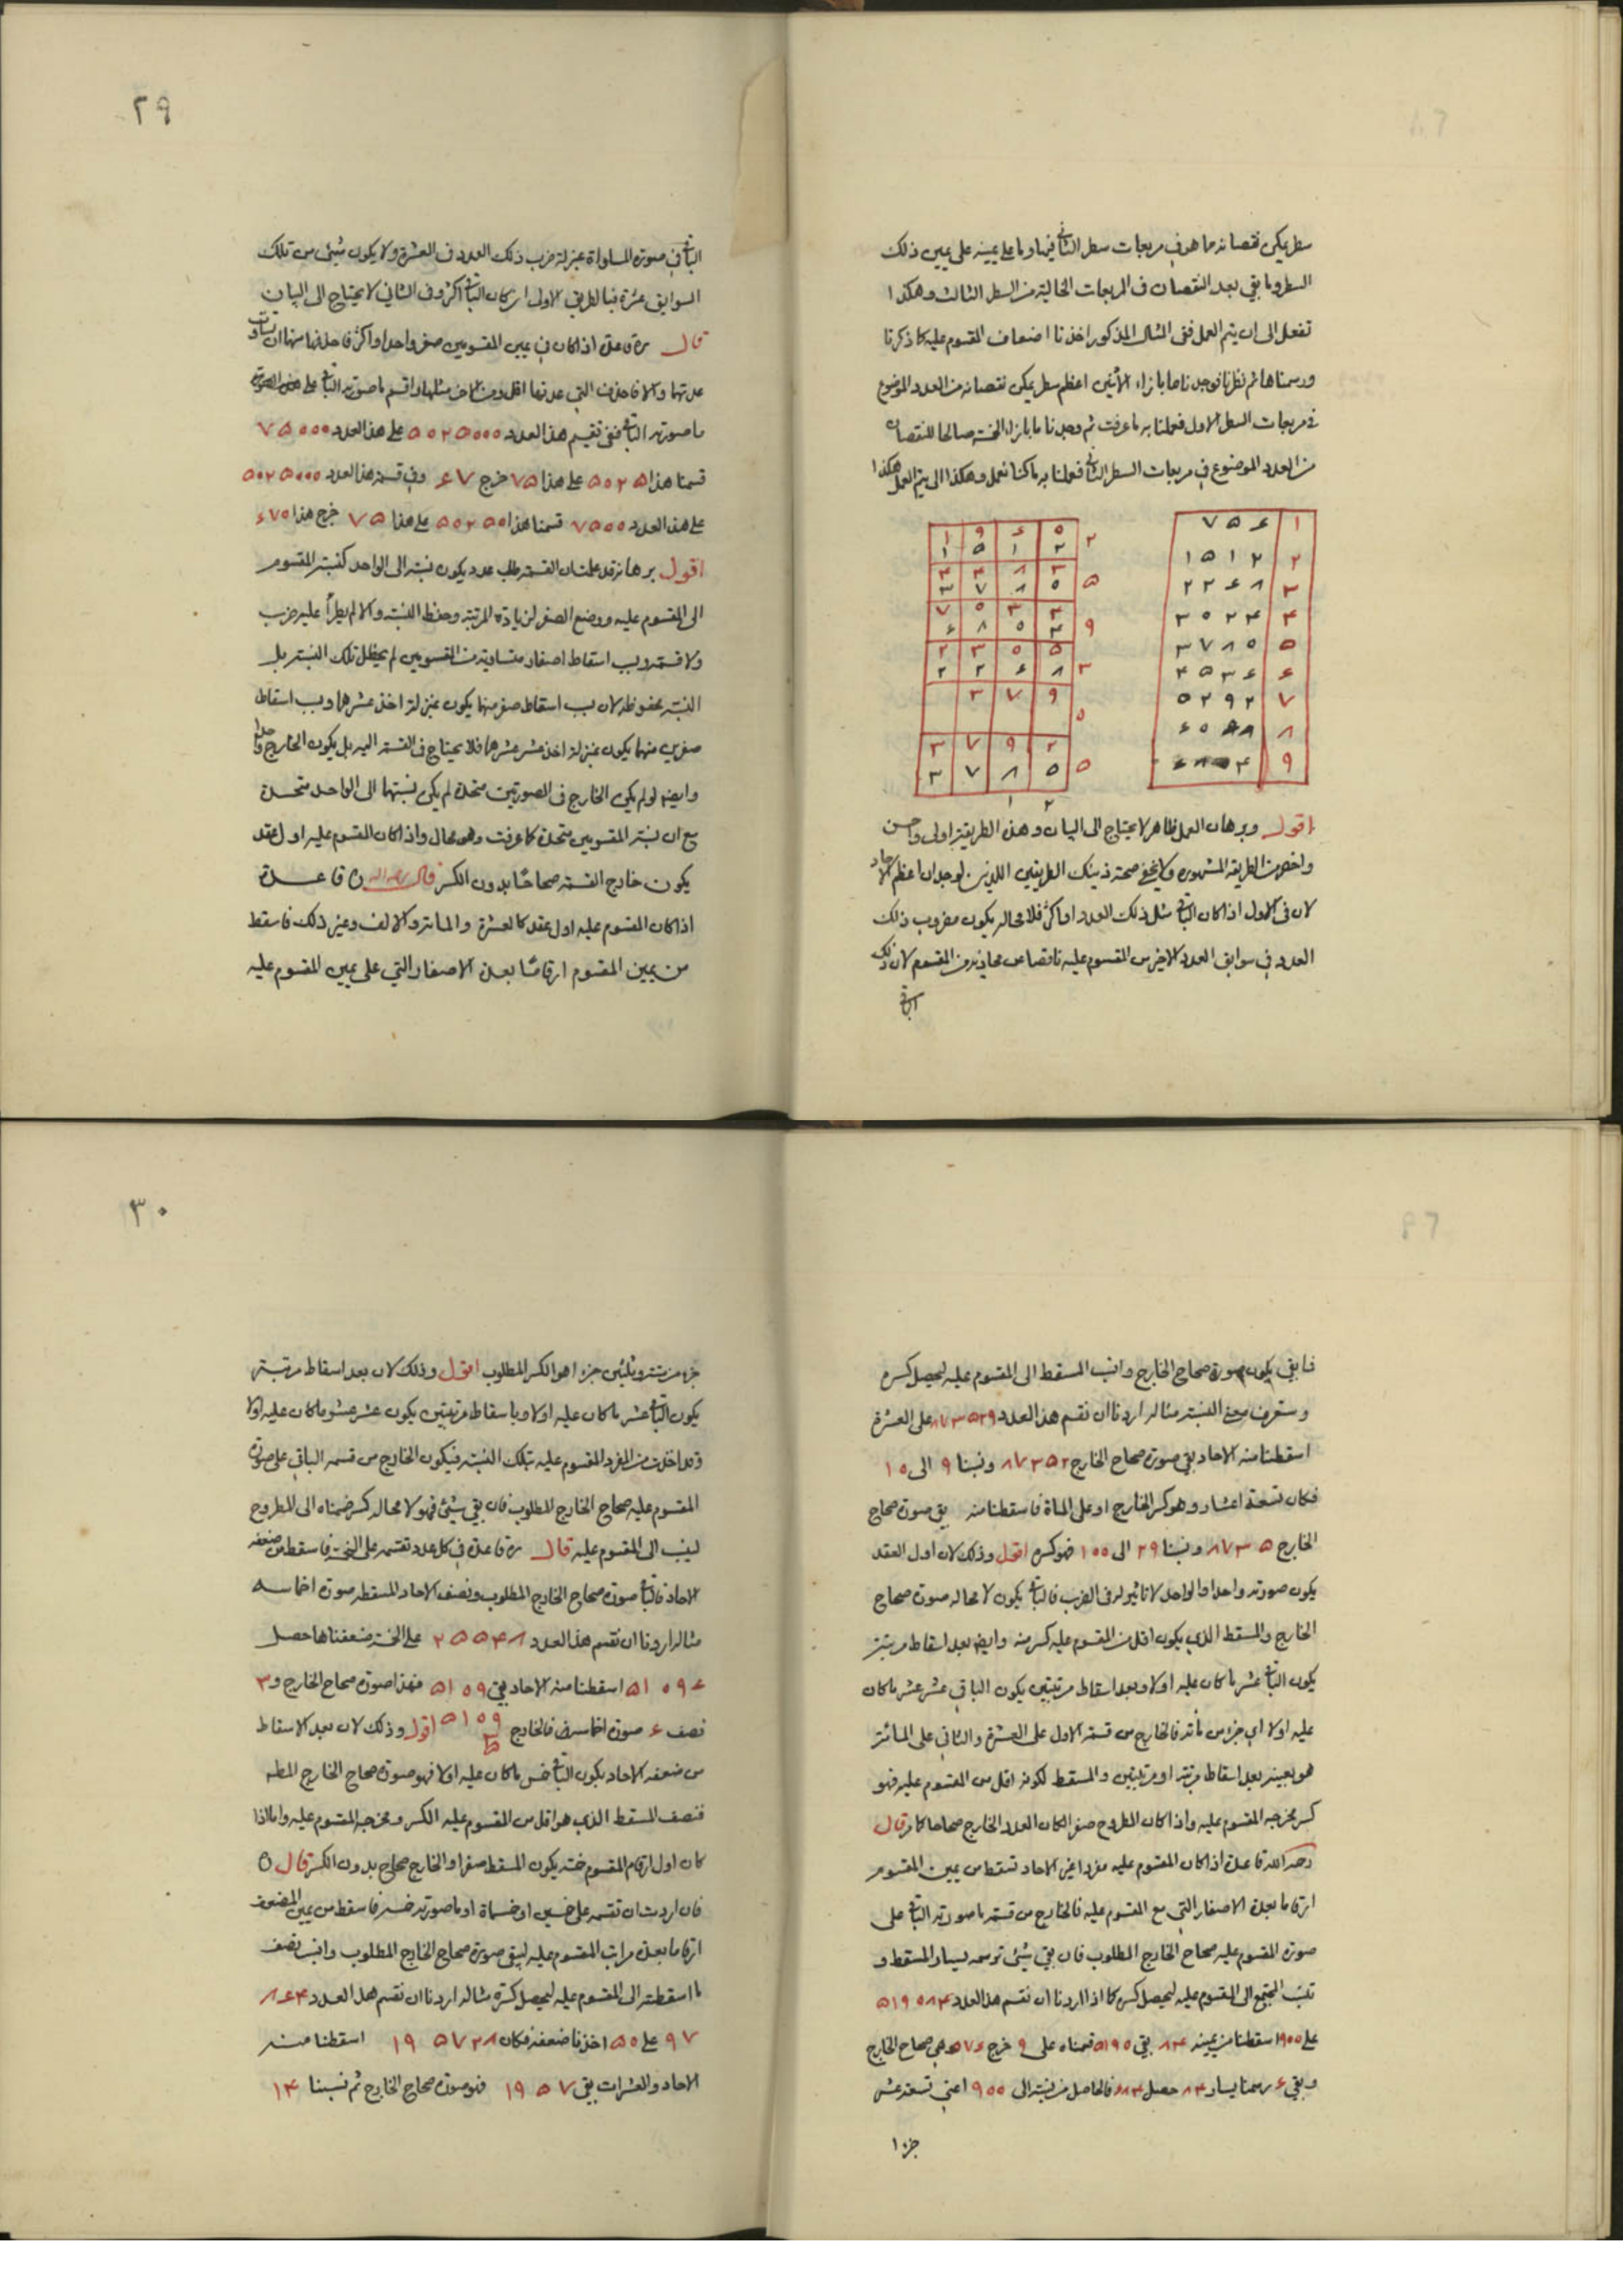 سطر يمكن نقصانه مما هو في مربعات سطر الثاني فيما وما على يمينه على يمين ذلك
السطر وما بقي بعد النقصان في المربعات الخالية من السطر الثالث وهكذا
تفعل الى ان يتم العمل ففي المثال المذكور اخذنا اضعاف المقسوم عليه كما ذكرنا
ورسمناها ثم نظرنا فوجدنا ما بازاء الاثنين اعظم سطر يمكن نقصانه من العدد الموضوع
في مربعات السطر الاول فعملنا به ما عرفت ثم وجدنا ما بازاء الخمسة صالحا للنقصان
من العدد الموضوع في مربعات السطر الثاني فعملنا به ما كنا نعمل وهكذا الى يتم العمل هكذا
۱ ۷۵۶
۲ ۱۵۱۲
۳ ۲۲۶۸
۴ ۳۰۲۴
۵ ۳۷۸۰
۶ ۴۵۳۶
۷ ۵۲۹۲
۸ ۶۰۴۸
۹ ۶۸۰۴
۱ ۹ ۶ ۵ ۲
۱ ۵ ۱ ۲
۴ ۴ ۸ ۳
۳ ۷ ۸ ۰ ۵
۷ ۰ ۳ ۳
۶ ۸ ۰ ۴ ۹
۲ ۳ ۵ ۵
۲ ۲ ۶ ۸ ۳
۳ ۷ ۹
۰
۳ ۷ ۹ ۲
۳ ۷ ۸ ۰ ۵
۱ ۲
اقول وبرهان العمل ظاهر لا يحتاج الى البيان وهذه الطريقة اولى واحسن
واخصر من الطريقة المشهورة ولا يخفى صحة ذينك الطريقين اللذين لوجدان اعظم الآحاد
لان في الاول اذا كان الباقي مثل ذلك العدد او اكثر فلا محالة يكون مضروب ذلك
العدد في سوابق العدد الاخير من المقسوم عليه ناقصا عن محاذيه من المقسوم لان ذلك
الباقي
۲۹
الباقي في صورة المساواة بمنزلة ضرب ذلك العدد في العشرة ولا يكون شيئ من تلك
السوابق عشرة فبالطريق الاولى ان كان الباقي اكثر وفي الثاني لا يحتاج الى البيان
قال ره قاعدة اذا كان في يمين المقسومين صفر واحد او اكثر فاحذفها منهما ان تساوت
عدتهما والا فاحذف التي عدتها اقل ومن الاخر مثلها واقسم ما صورته الباقي على
ما صورته الباقي ففي تقسيم هذا العدد ۵۰۲۵۰۰۰ على هذا العدد ۷۵۰۰۰
قسمنا هذا ۵۰۲۵ على هذا ۷۵ خرج ۶۷ وفي قسمة هذا العدد ۵۰۲۵۰۰۰
على هذا العدد ۷۵۰۰ قسمنا هذا ۵۰۲۵۰ على هذا ۷۵ خرج هذا ۶۷۰
اقول برهانه قد علمت ان القسمة طلب عدد يكون نسبته الى الواحد كنسبة المقسوم
الى المقسوم عليه ووضع الصفر لزيادة المرتبة وحفظ النسبة والا لم يطرأ عليه ضرب
ولا قسمة وبسبب اسقاط اصفار متساوية من المقسومين لم يختل تلك النسبة بل
النسبة محفوظة لان بسبب اسقاط صفر منهما يكون بمنزلة اخذ عشرهما وبسبب اسقاط
صفرين منهما يكون بمنزلة اخذ عشر عشرهما فلا يحتاج في القسمة اليه بل يكون الخارج واحدا
وايضا لو لم يكن الخارج في الصورتين متحدة لم يكن نسبتهما الى الواحد متحدة
مع ان نسبة المقسومين متحدة كما عرفت وهو محال واذا كان المقسوم عليه اول عقد
يكون خارج القسمة صحاحًا بدون الكسر قال رحمه الله ه قاعدة
اذا كان المقسوم عليه اول عقد كالعشرة والمائة والالف وغير ذلك فاسقط
من يمين المقسوم ارقامًا بعدة الاصفار التي على يمين المقسوم عليه
فما بقي يكون صورة صحاح الخارج وانسب المسقط الى المقسوم عليه ليحصل كسره
وستعرف معنى النسبة مثاله اردنا ان نقسم هذا العدد ۸۷۳۵۲۹ على العشرة
اسقطنا منه الآحاد بقي صورة صحاح الخارج ۸۷۳۵۲ ونسبنا ۹ الى ۱۰
فكان تسعة اعشار وهو كسر الخارج او على المائة فاسقطنا منه بقي صورة صحاح
الخارج ۸۷۳۵ ونسبنا ۲۹ الى ۱۰۰ فهو كسره اقول وذلك لان اول العقد
يكون صورته واحدا والواحد لا تاثير له في الضرب فالباقي يكون لا محالة صورة صحاح
الخارج والمسقط الذي يكون اقل من المقسوم عليه كسر منه وايضا بعد اسقاط مرتبة
يكون الباقي عشر ما كان عليه اولا وبعد اسقاط مرتبتين يكون الباقي عشر عشر ما كان
عليه اولا اي جزء من مائة فالخارج من قسمة الاول على العشرة والثاني على المائة
هو بعينه بعد اسقاط مرتبة او مرتبتين والمسقط لكونه اقل من المقسوم عليه فهو
كسر مخرجه المقسوم عليه واذا كان المطروح صفرا لكان العدد الخارج صحاحا كما مر قال
رحمه الله قاعدة اذا كان المقسوم عليه مفردا غير الآحاد تسقط من يمين المقسوم
ارقاما بعدة الاصفار التي مع المقسوم عليه فالخارج من قسمة ما صورته الباقي على
صورة المقسوم عليه صحاح الخارج المطلوب فان بقي شيئ ترسمه ليسار المسقط و
تنسب المجتمع الى المقسوم عليه ليحصل كسره كما اذا اردنا ان نقسم هذا العدد ۵۱۹۰۸۴
على ۹۰۰ اسقطنا من يمينه ۸۴ بقي ۵۱۹۰ قسمناه على ۹ خرج ۵۷۶ هي صحاح الخارج
وبقي ۶ رسمنا يسار ۸۴ حصل ۶۸۴ فالحاصل من نسبته الى ۹۰۰ اعني تسعة عشر
جزءا
۳۰
جزءا من ستة وثلثين جزءا هو الكسر المطلوب اقول وذلك لان بعد اسقاط مرتبة
يكون الباقي عشر ما كان عليه اولا وباسقاط مرتبتين يكون عشر عشر ما كان عليه اولا
وقد اخذت من المفرد المقسوم عليه بتلك النسبة فيكون الخارج من قسمة الباقي على صورة
المقسوم عليه صحاح الخارج المطلوب فان بقي شيئ فهو لا محالة كسر ضممناه الى المطروح
لينسب الى المقسوم عليه قال ره قاعدة في كل عدد تقسمه على الخمسة فاسقط من ضعفه
الآحاد فالباقي صورة صحاح الخارج المطلوب ونصف الآحاد المسقطة صورة اخماسه
مثاله اردنا ان نقسم هذا العدد ۲۵۵۴۸ على الخمسة ضعفناها حصل
۵۱۰۹۶ اسقطنا منه الآحاد بقي ۵۱۰۹ فهذا صورة صحاح الخارج و۳
نصف ۶ صورة اخماسه فالخارج ۵۱۰۹ اقول وذلك لان بعد الاسقاط
من ضعفه الآحاد يكون الباقي خمس ما كان عليه اولا فهو صورة صحاح الخارج المط
فنصف المسقط الذي هو اقل من المقسوم عليه الكسر ومخرجه المقسوم عليه واما اذا
كان اول ارقام المقسوم خمسة يكون المسقط صفرا والخارج صحاح بدون الكسر قال ه
فان اردت ان تقسمه على خمسين او خمسمائة او ما صورته خمسة فاسقط من يمين المضعف
ارقاما بعدة مراتب المقسوم عليه ليبقى صورة صحاح الخارج المطلوب وانسب نصف
ما اسقطته الى المقسوم عليه ليحصل كسره مثاله اردنا ان نقسم هذا العدد ۸۶۴
۹۷ على ۵۰ اخذنا ضعفه فكان ۱۹۵۷۲۸ اسقطنا منه
الآحاد والعشرات بقي ۱۹۵۷ فهو صورة صحاح الخارج ثم نسبنا ۱۴